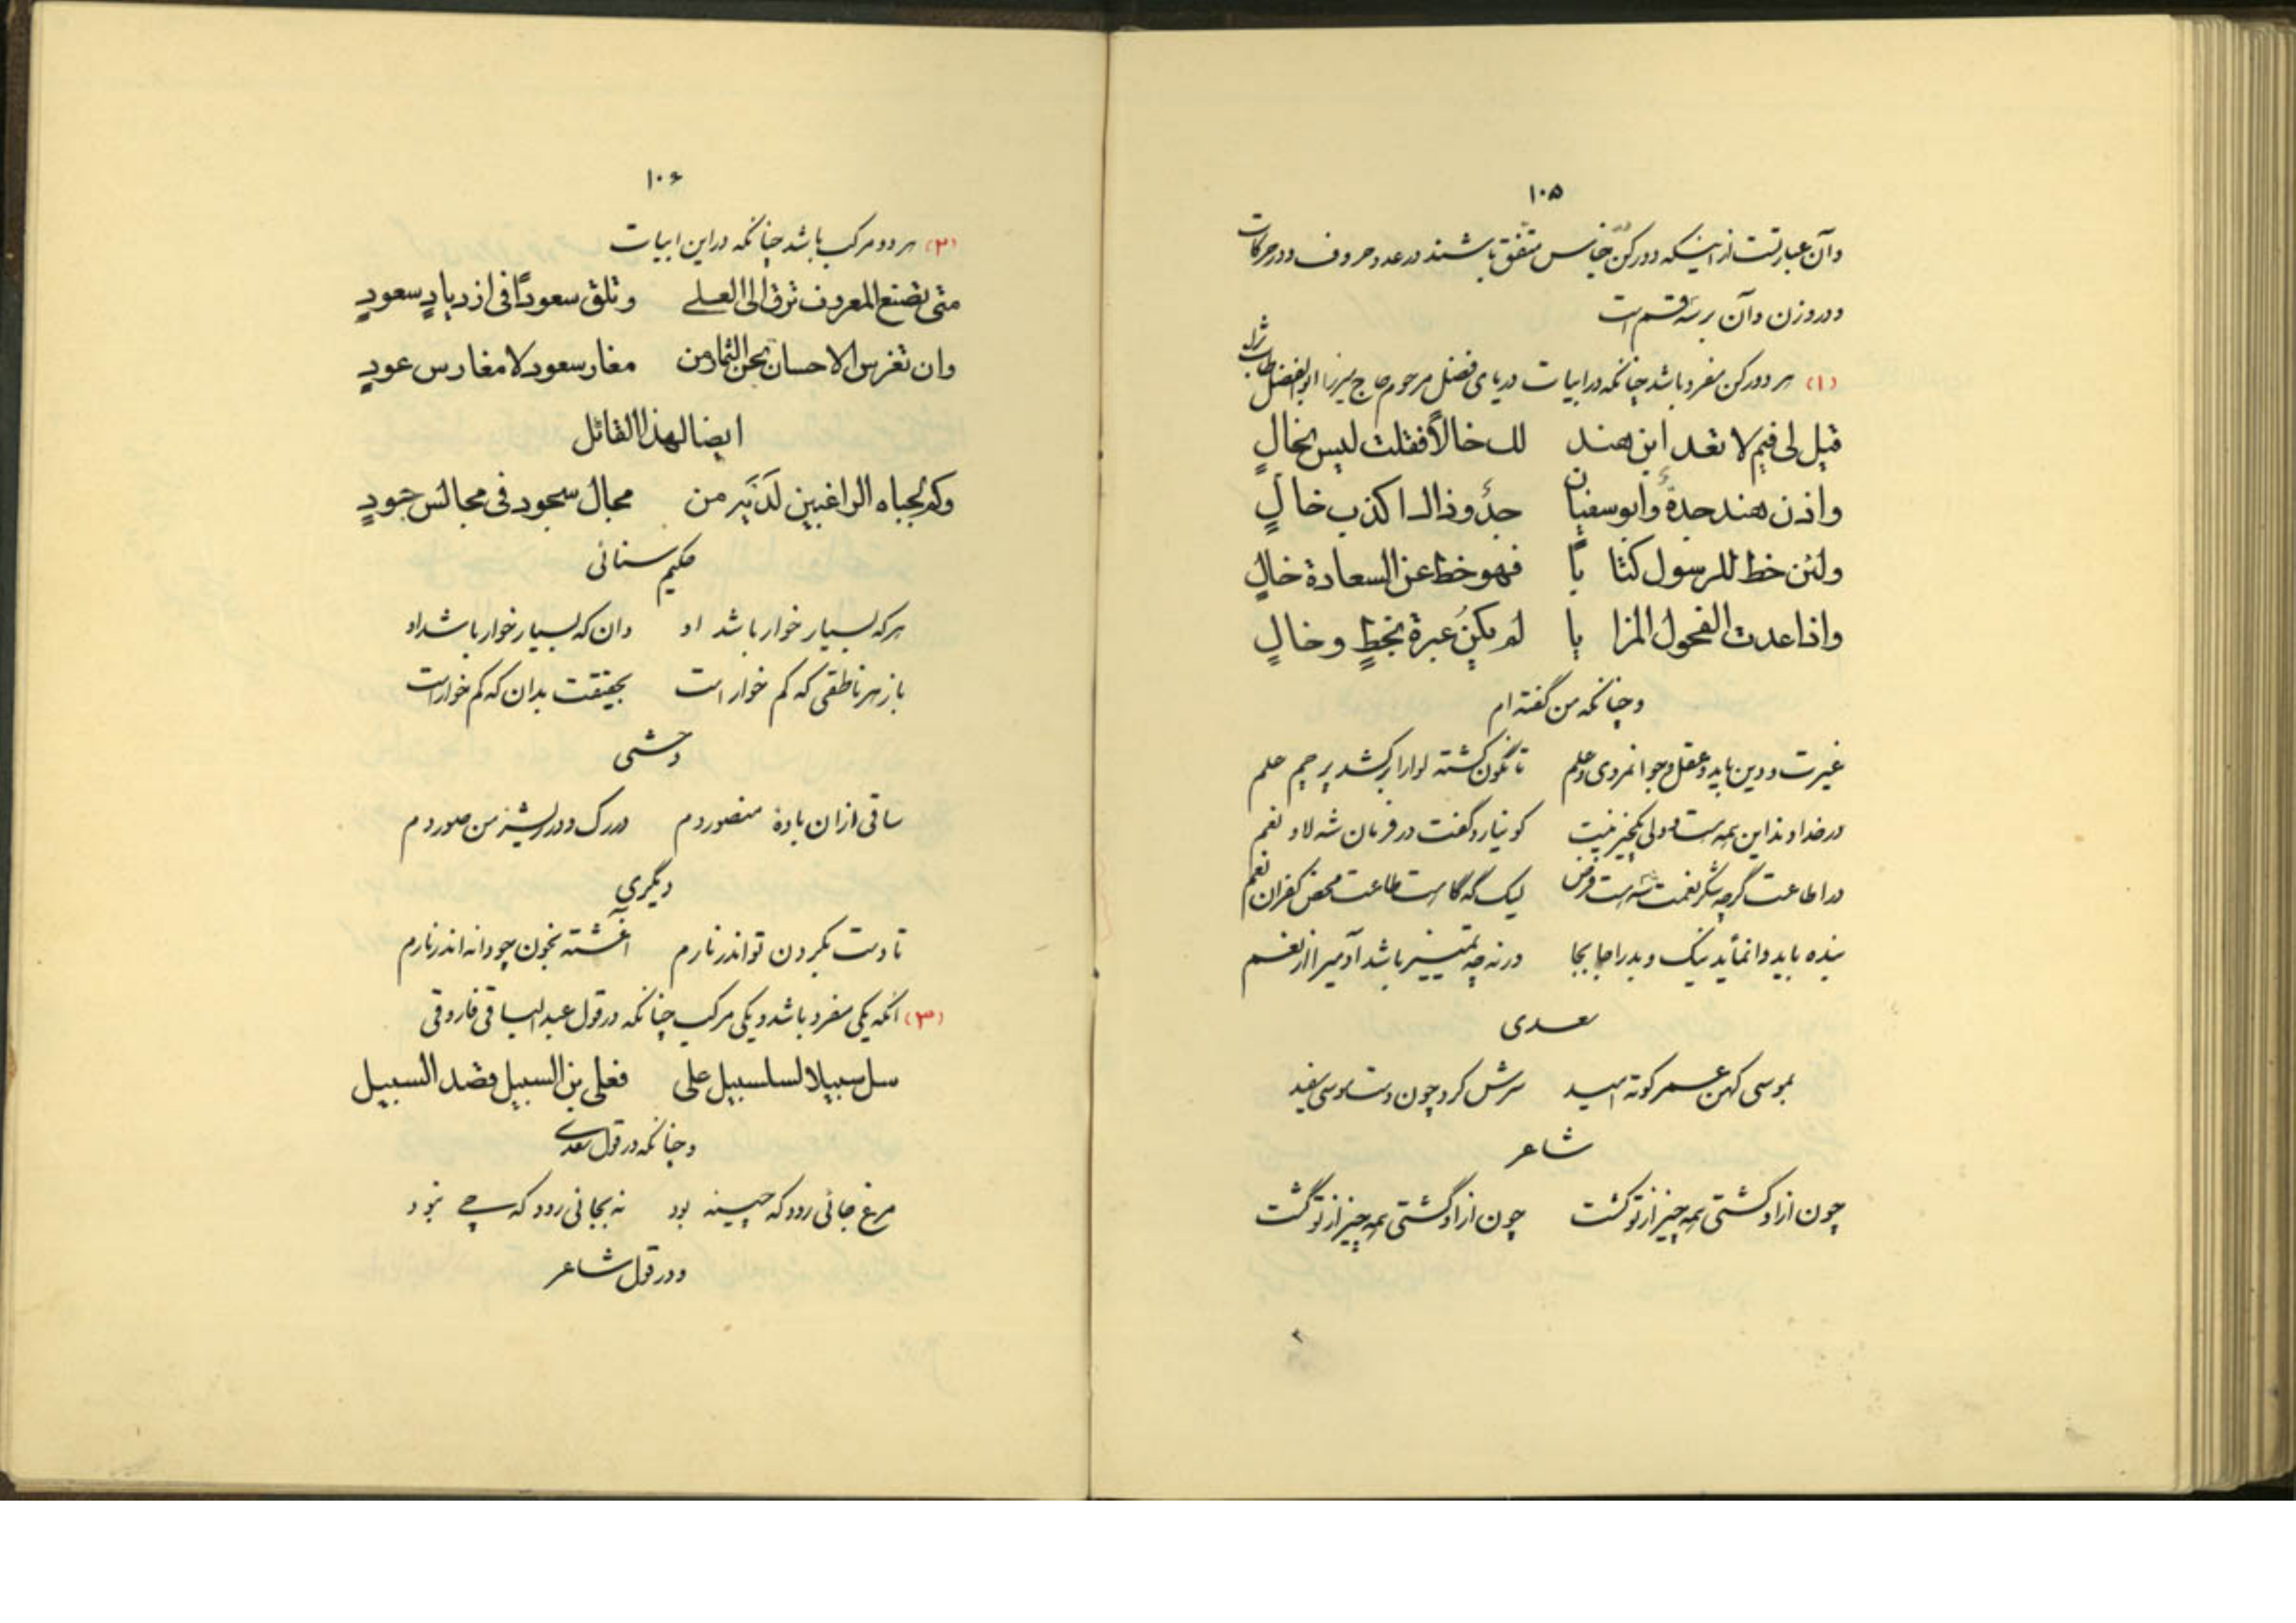 ۱۰۵
وآن عبارتست از اینکه دو رکن جناس متفق باشند در عدد حروف و در حرکات
و در وزن و آن بر سه قسم است
(۱) هر دو رکن مفرد باشد چنانکه در ابیات دریای فضل مرحوم حاج میرزا ابوالفضل طاب ثراه
قیل لی فیم لا تعد ابن هند لك خالاً فقلت لیس بخالٍ
واذن هند جدةٌ وابو سفیان جدٌ وذاك اکذب خالٍ
ولئن خط للرسول کتا باً فهو خط عن السعادة خالٍ
واذا عدت الفحول المزا یا لم یکن عبرة بخطٍ وخالٍ
و چنانکه من گفته ام
غیرت و دین باید و عقل و جوانمردی و علم تا نگون گشته لوا را برکشد پرچم علم
در خداوند این همه هست ولی یکچیز نیست کو نیارد گفت در فرمان شه لا و نعم
در اطاعت گرچه شکر نعمت شه است فرض لیک گه گاه است طاعت محض کفران نعم
بنده باید وانماید نیک و بد را جابجا ورنه چه تمییز باشد آدمی را از نعم
سعدی
بموسی کهن عمر کوته امید سرش کرد چون دست موسی سفید
شاعر
چون از او گشتی همه چیز از تو گشت چون از او گشتی همه چیز از تو گشت
۱۰۶
(۲) هر دو مرکب باشد چنانکه در این ابیات
متی تصنع المعروف ترق الی العلے وتلق سعوداً فی ازدیادٍ سعودٍ
وان تغرس الاحسان تجن الثمار من مغار سعود لا مغارس عودٍ
ایضا لهذا القائل
وکم لجباه الراغبین لدیه من مجال سجود فی مجالس جودٍ
حکیم سنائی
هرکه بسیار خوار باشد او دان که بسیار خوار باشد او
باز هر ناطقی که کم خوار است بحقیقت بدان که کم خوار است
وحشی
ساقی ازان بادۀ منصور دم در رگ و در ریشۀ من صور دم
دیگری
تا دست بگردن تو اندر نارم آغشته بخون چو دانه اندر نارم
(۳) آنکه یکی مفرد باشد و یکی مرکب چنانکه در قول عبدالباقی فاروقی
سل سبیلا لسلسبیل علی فعلی بن السبیل قصد السبیل
و چنانکه در قول سعدی
مرغ جائی رود که چینه بود نه بجائی رود که چے نبود
و در قول شاعر